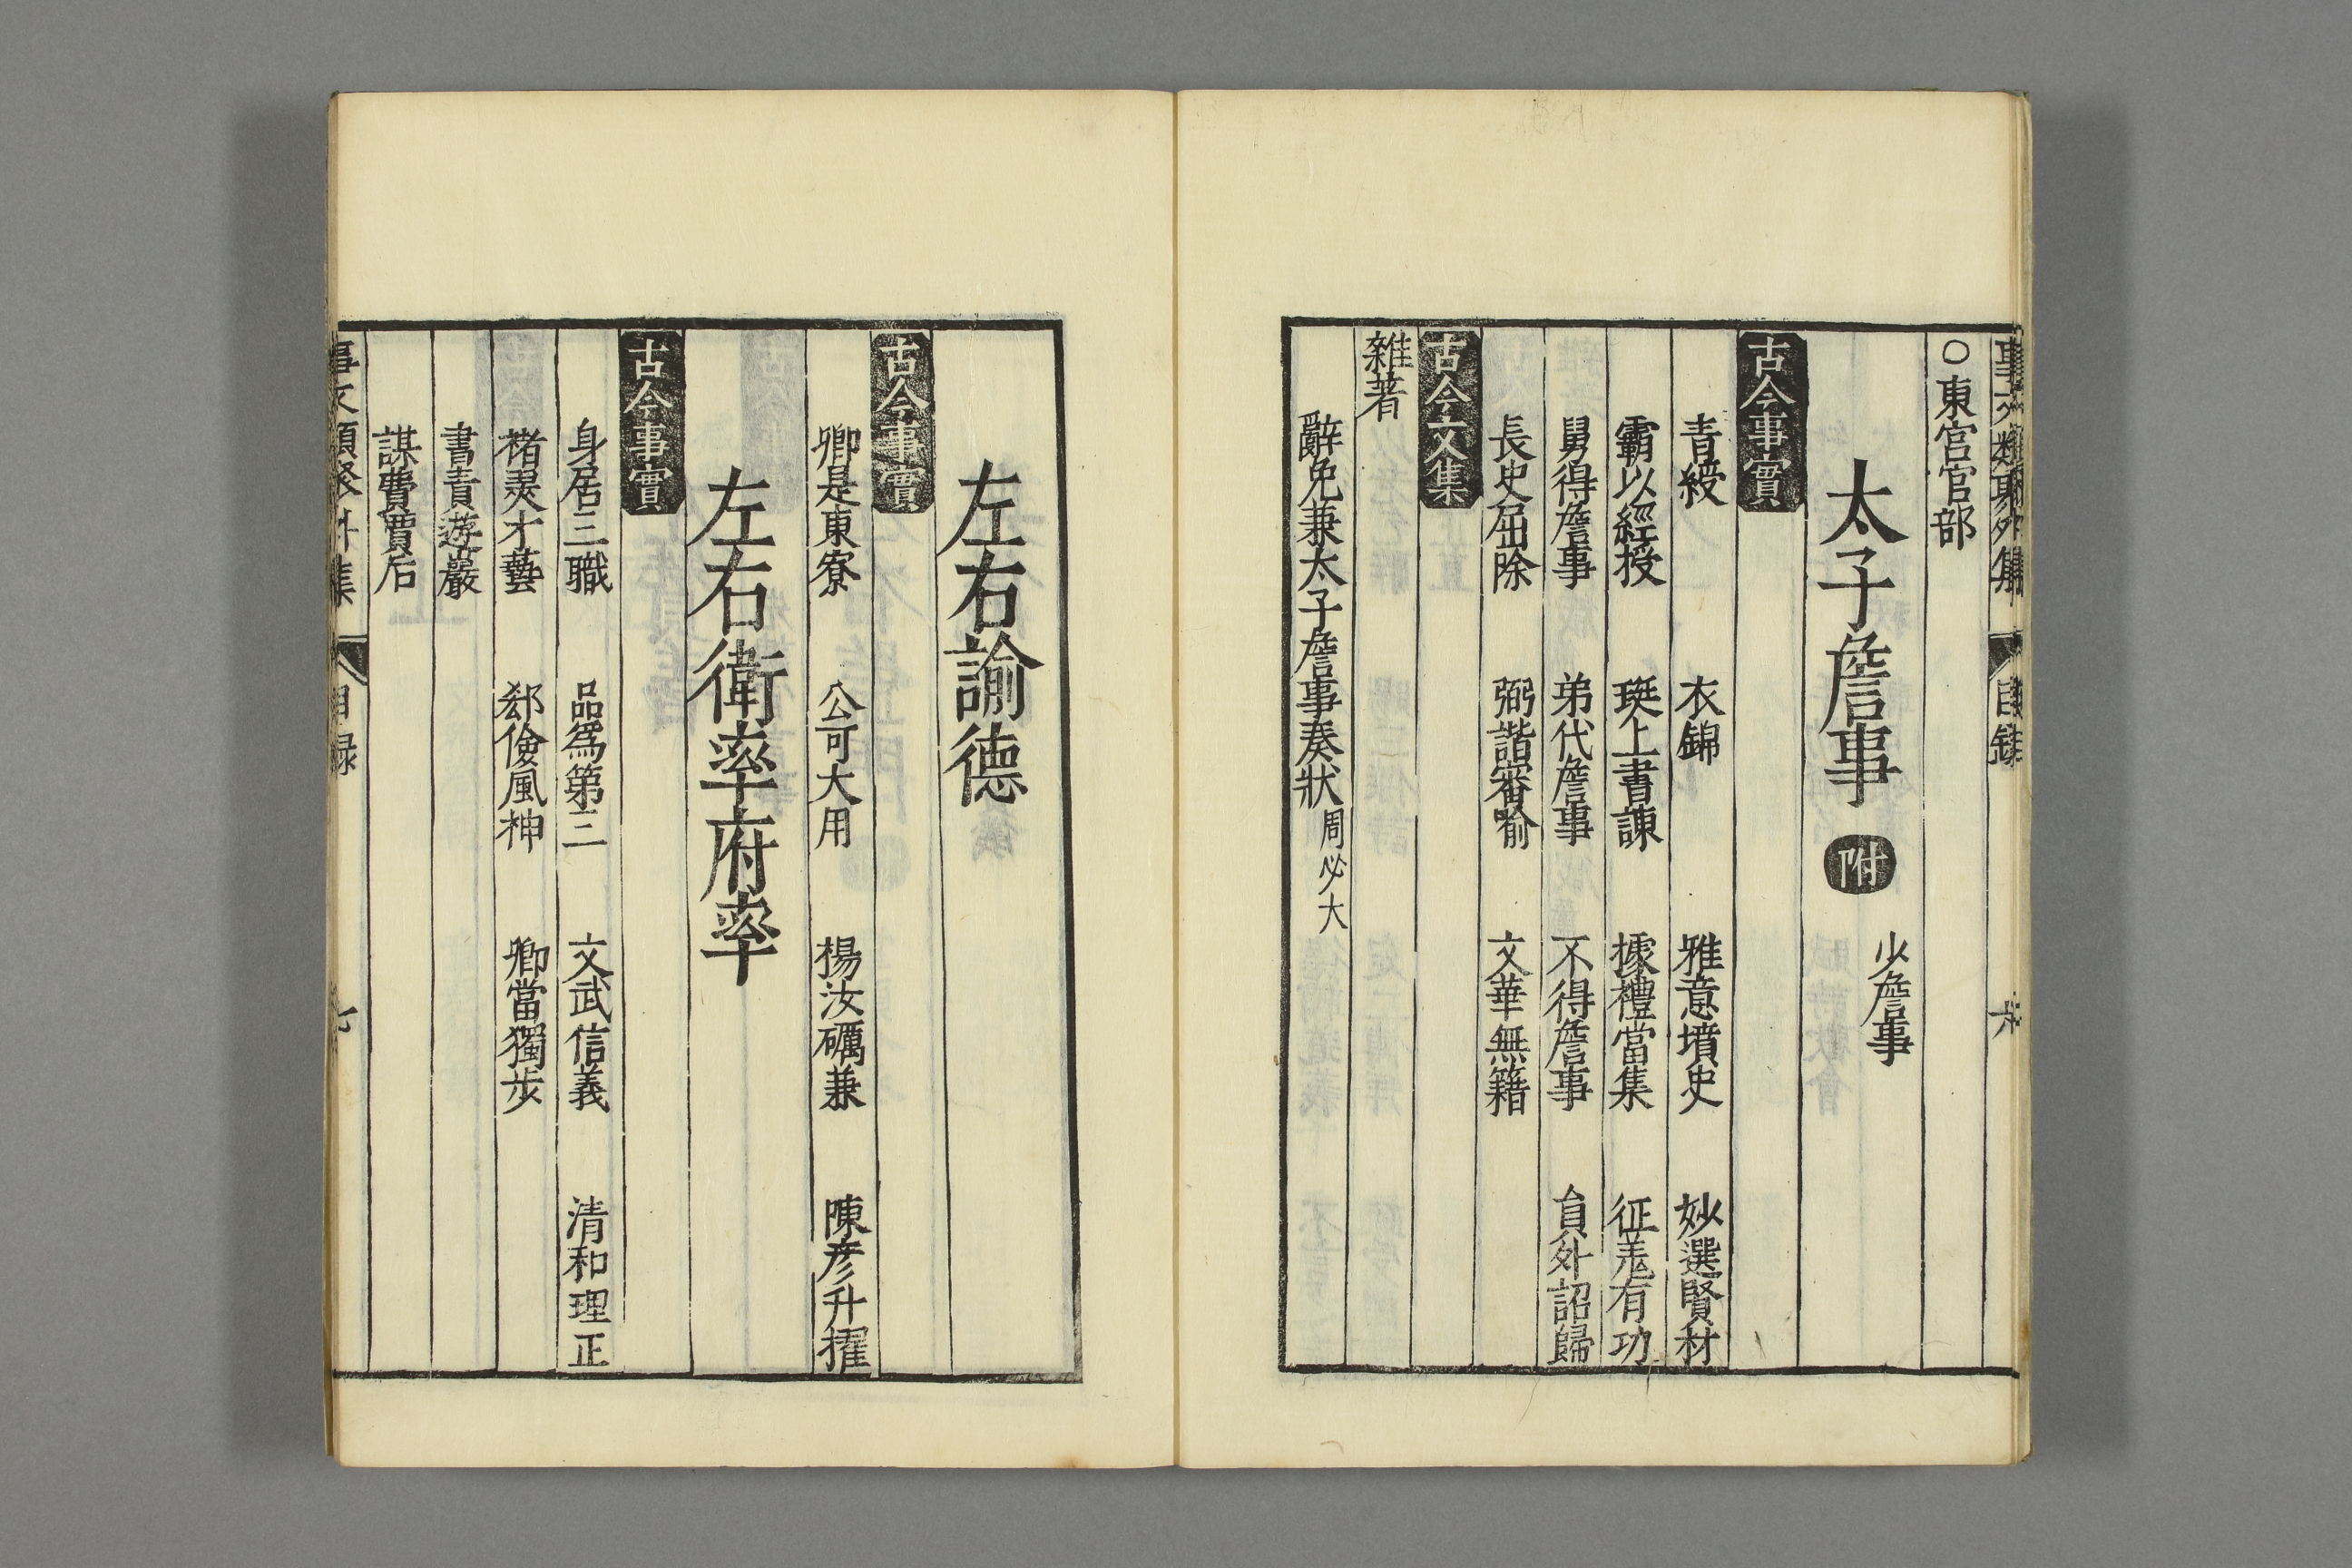 事文類聚外集 目録 六
○東宮官部
太子詹事 附 少詹事
古今事實
青綬 衣錦 雅意墳史 妙選賢材
霸以經授 珽上書諫 據禮當集 征羌有功
舅得詹事 弟代詹事 不得詹事 貟外詔歸
長史屈除 弼諧審喻 文華無籍
古今文集
雜著
辭免兼太子詹事奏狀 周必大
左右諭德
古今事實
卿是東寮 公可大用 楊汝礪兼 陳彦升擢
左右衛率府率
古今事實
身居三職 品為第三 文武信義 清和理正
褚翜才藝 郄儉風神 卿當獨步
書責遊巖
謀費賈后
事文類聚外集 目録 七